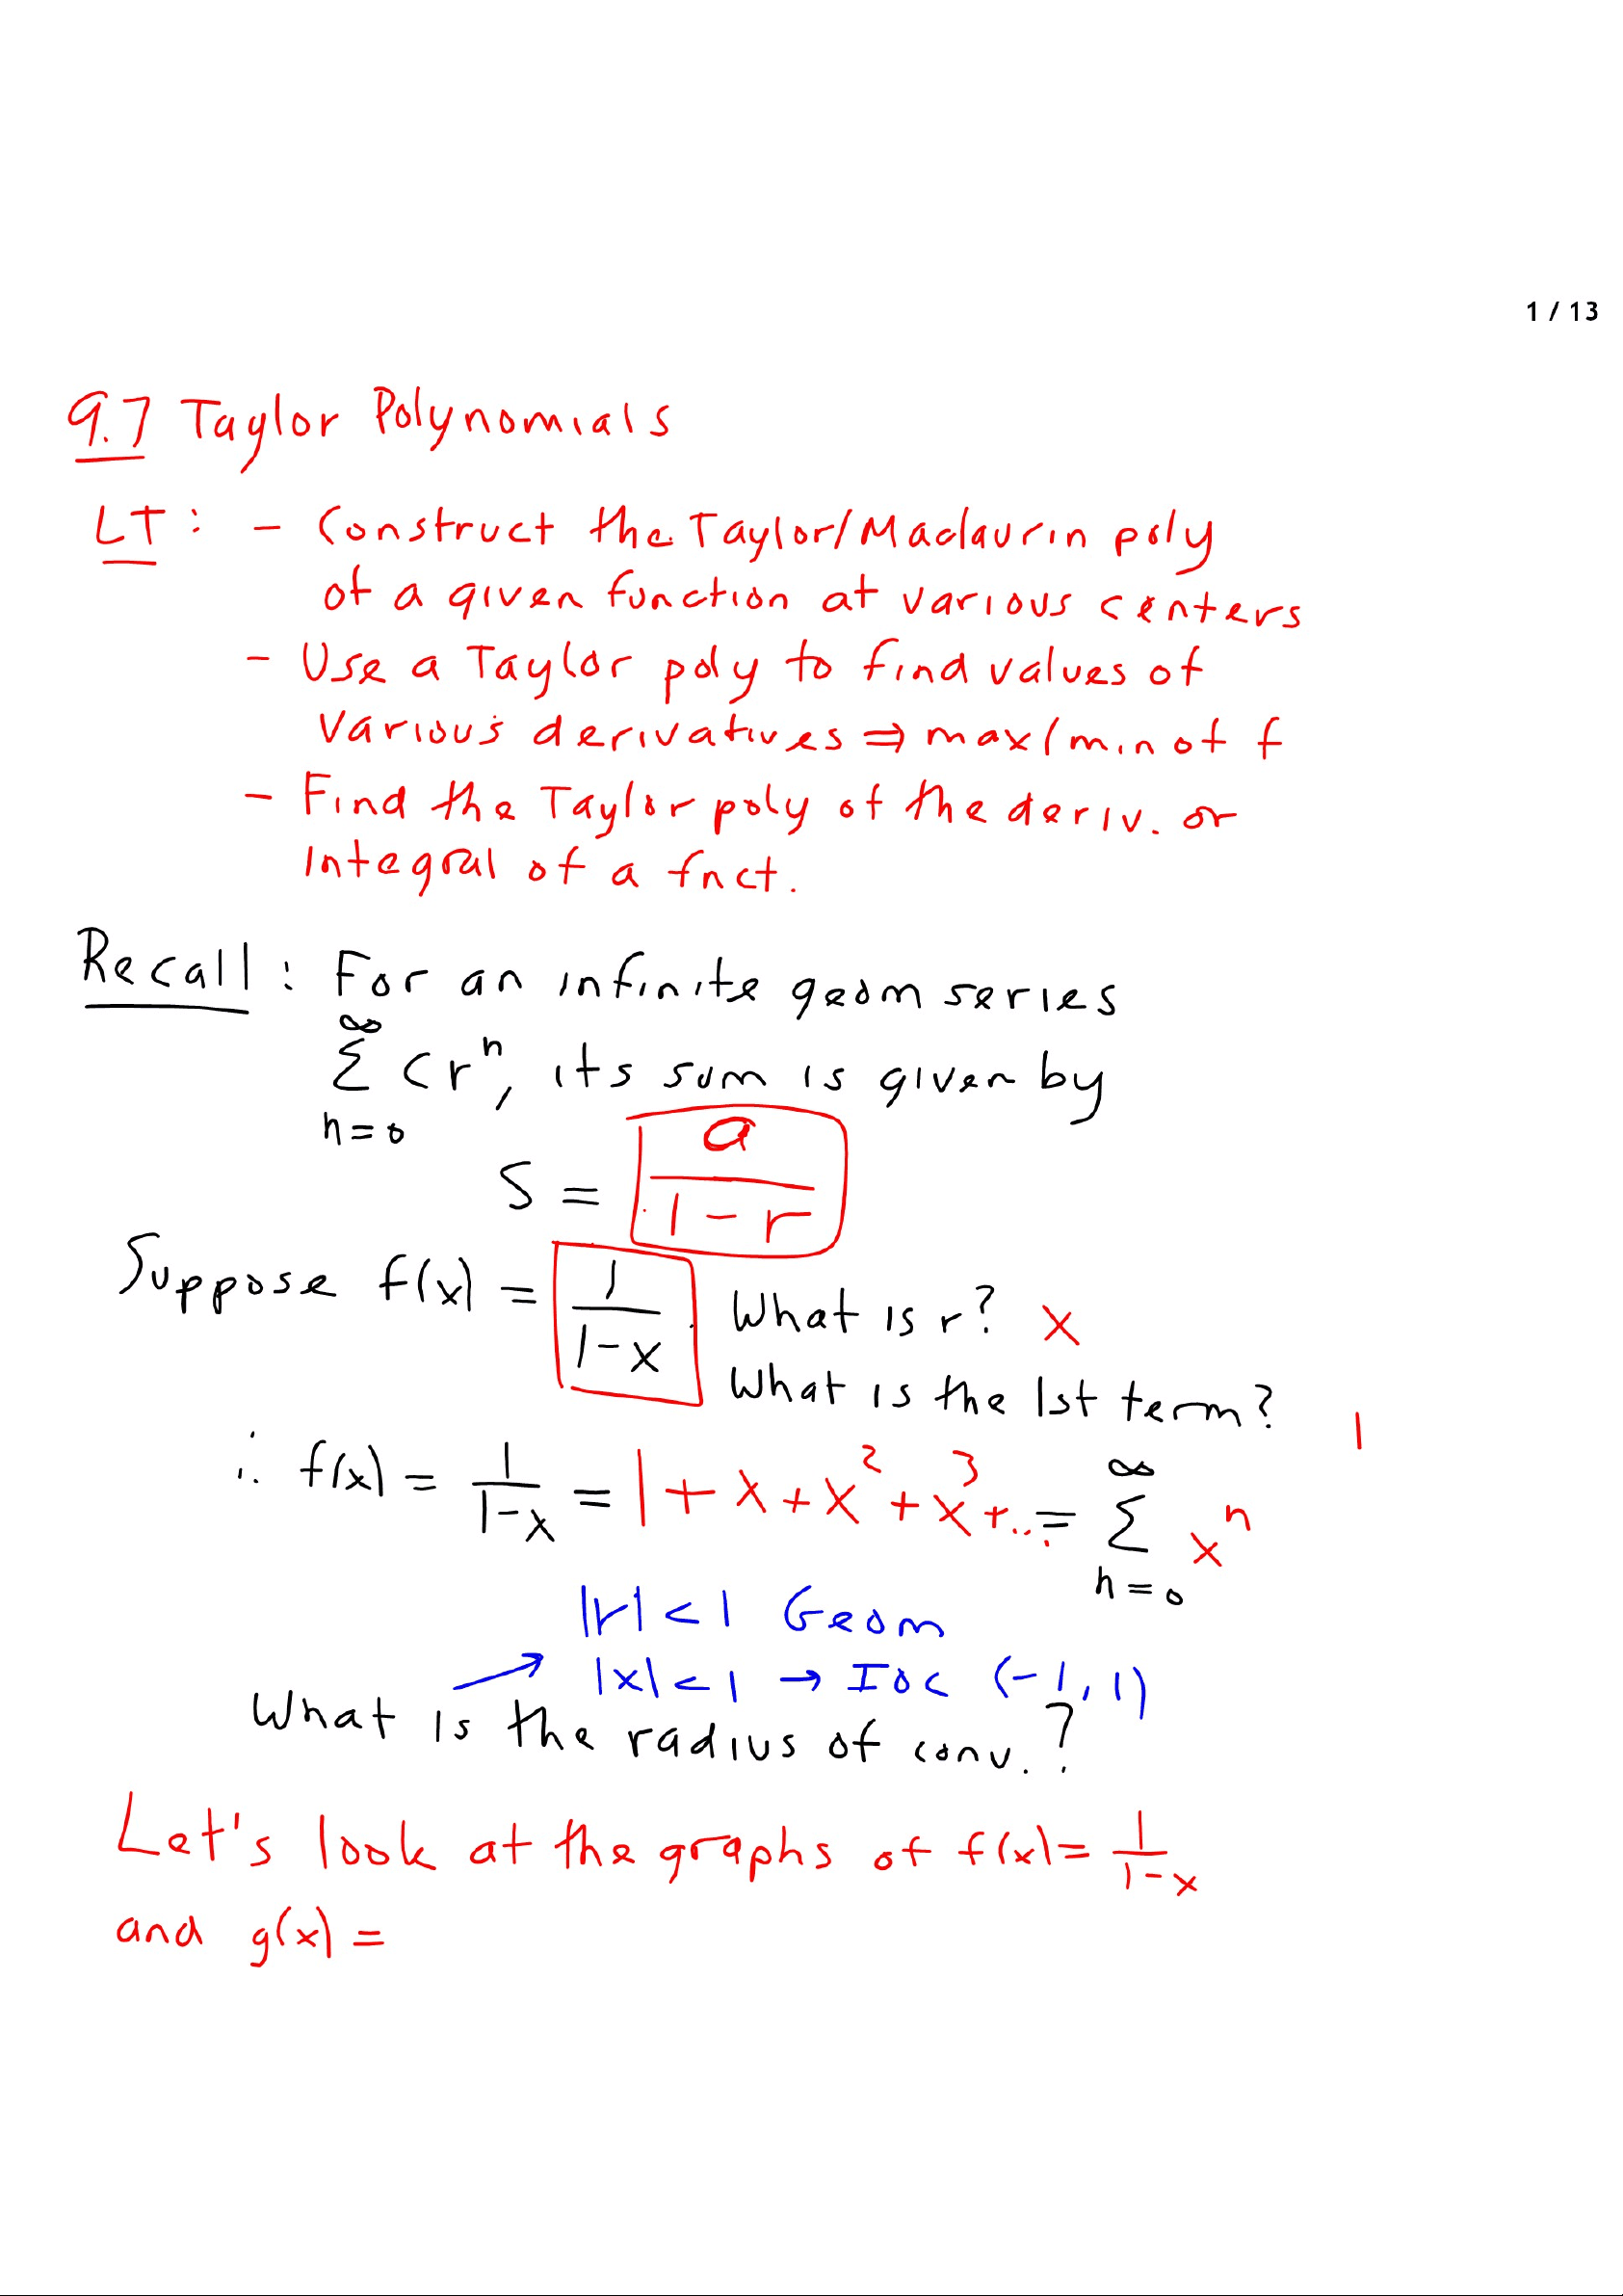 1 / 13
9.7 Taylor Polynomials
LT: - Construct the Taylor/Maclaurin poly
of a given function at various centers
- Use a Taylor poly to find values of
various derivatives ⇒ max/min of f
- Find the Taylor poly of the deriv. or
integral of a fnct.
Recall: For an infinite geom series
∞
Σ c r^n, its sum is given by
n=0
S = a/(1-r)
Suppose f(x) = 1/(1-x). What is r? x
What is the 1st term? 1
∴ f(x) = 1/(1-x) = 1+x+x^2+x^3+... = Σ_{n=0}^{∞} x^n
|r|<1 Geom
|x|<1 → IOC (-1,1)
What is the radius of conv.?
Let's look at the graphs of f(x)=1/(1-x)
and g(x)=